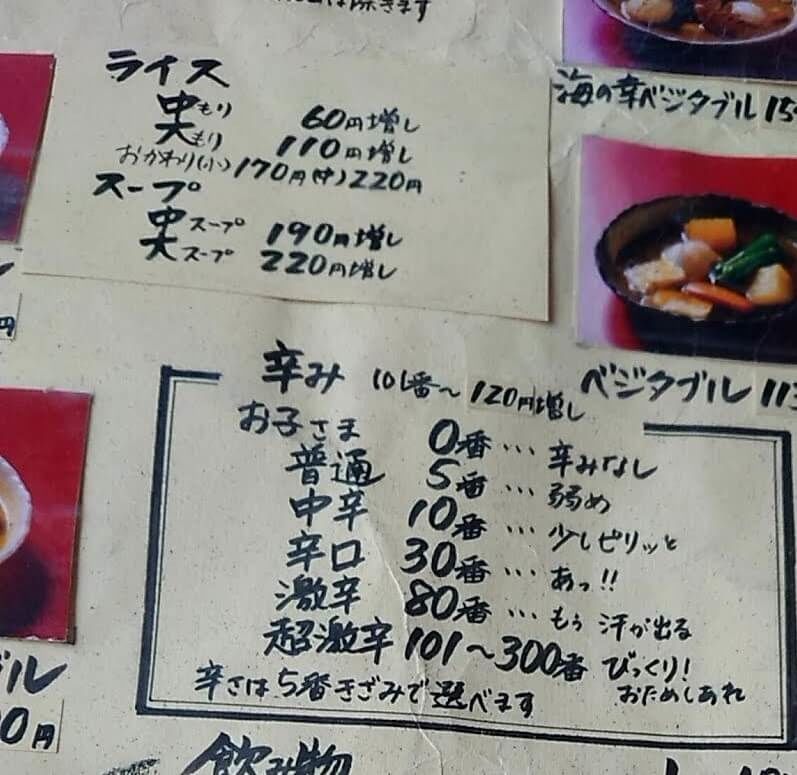 は除きます
ライス
中もり 60円増し
大もり 110円増し
おかわり(小)170円(中)220円
スープ
中スープ 190円増し
大スープ 220円増し
海の幸ベジタブル 15
ベジタブル 113
辛み 101番~120円増し
お子さま 0番…辛みなし
普通 5番…弱め
中辛 10番…少しピリッと
辛口 30番…あっ!!
激辛 80番…もぅ汗が出る
超激辛 101~300番 びっくり!
おためしあれ
辛さは5番きざみで選べます
ブル
0円
飲み物